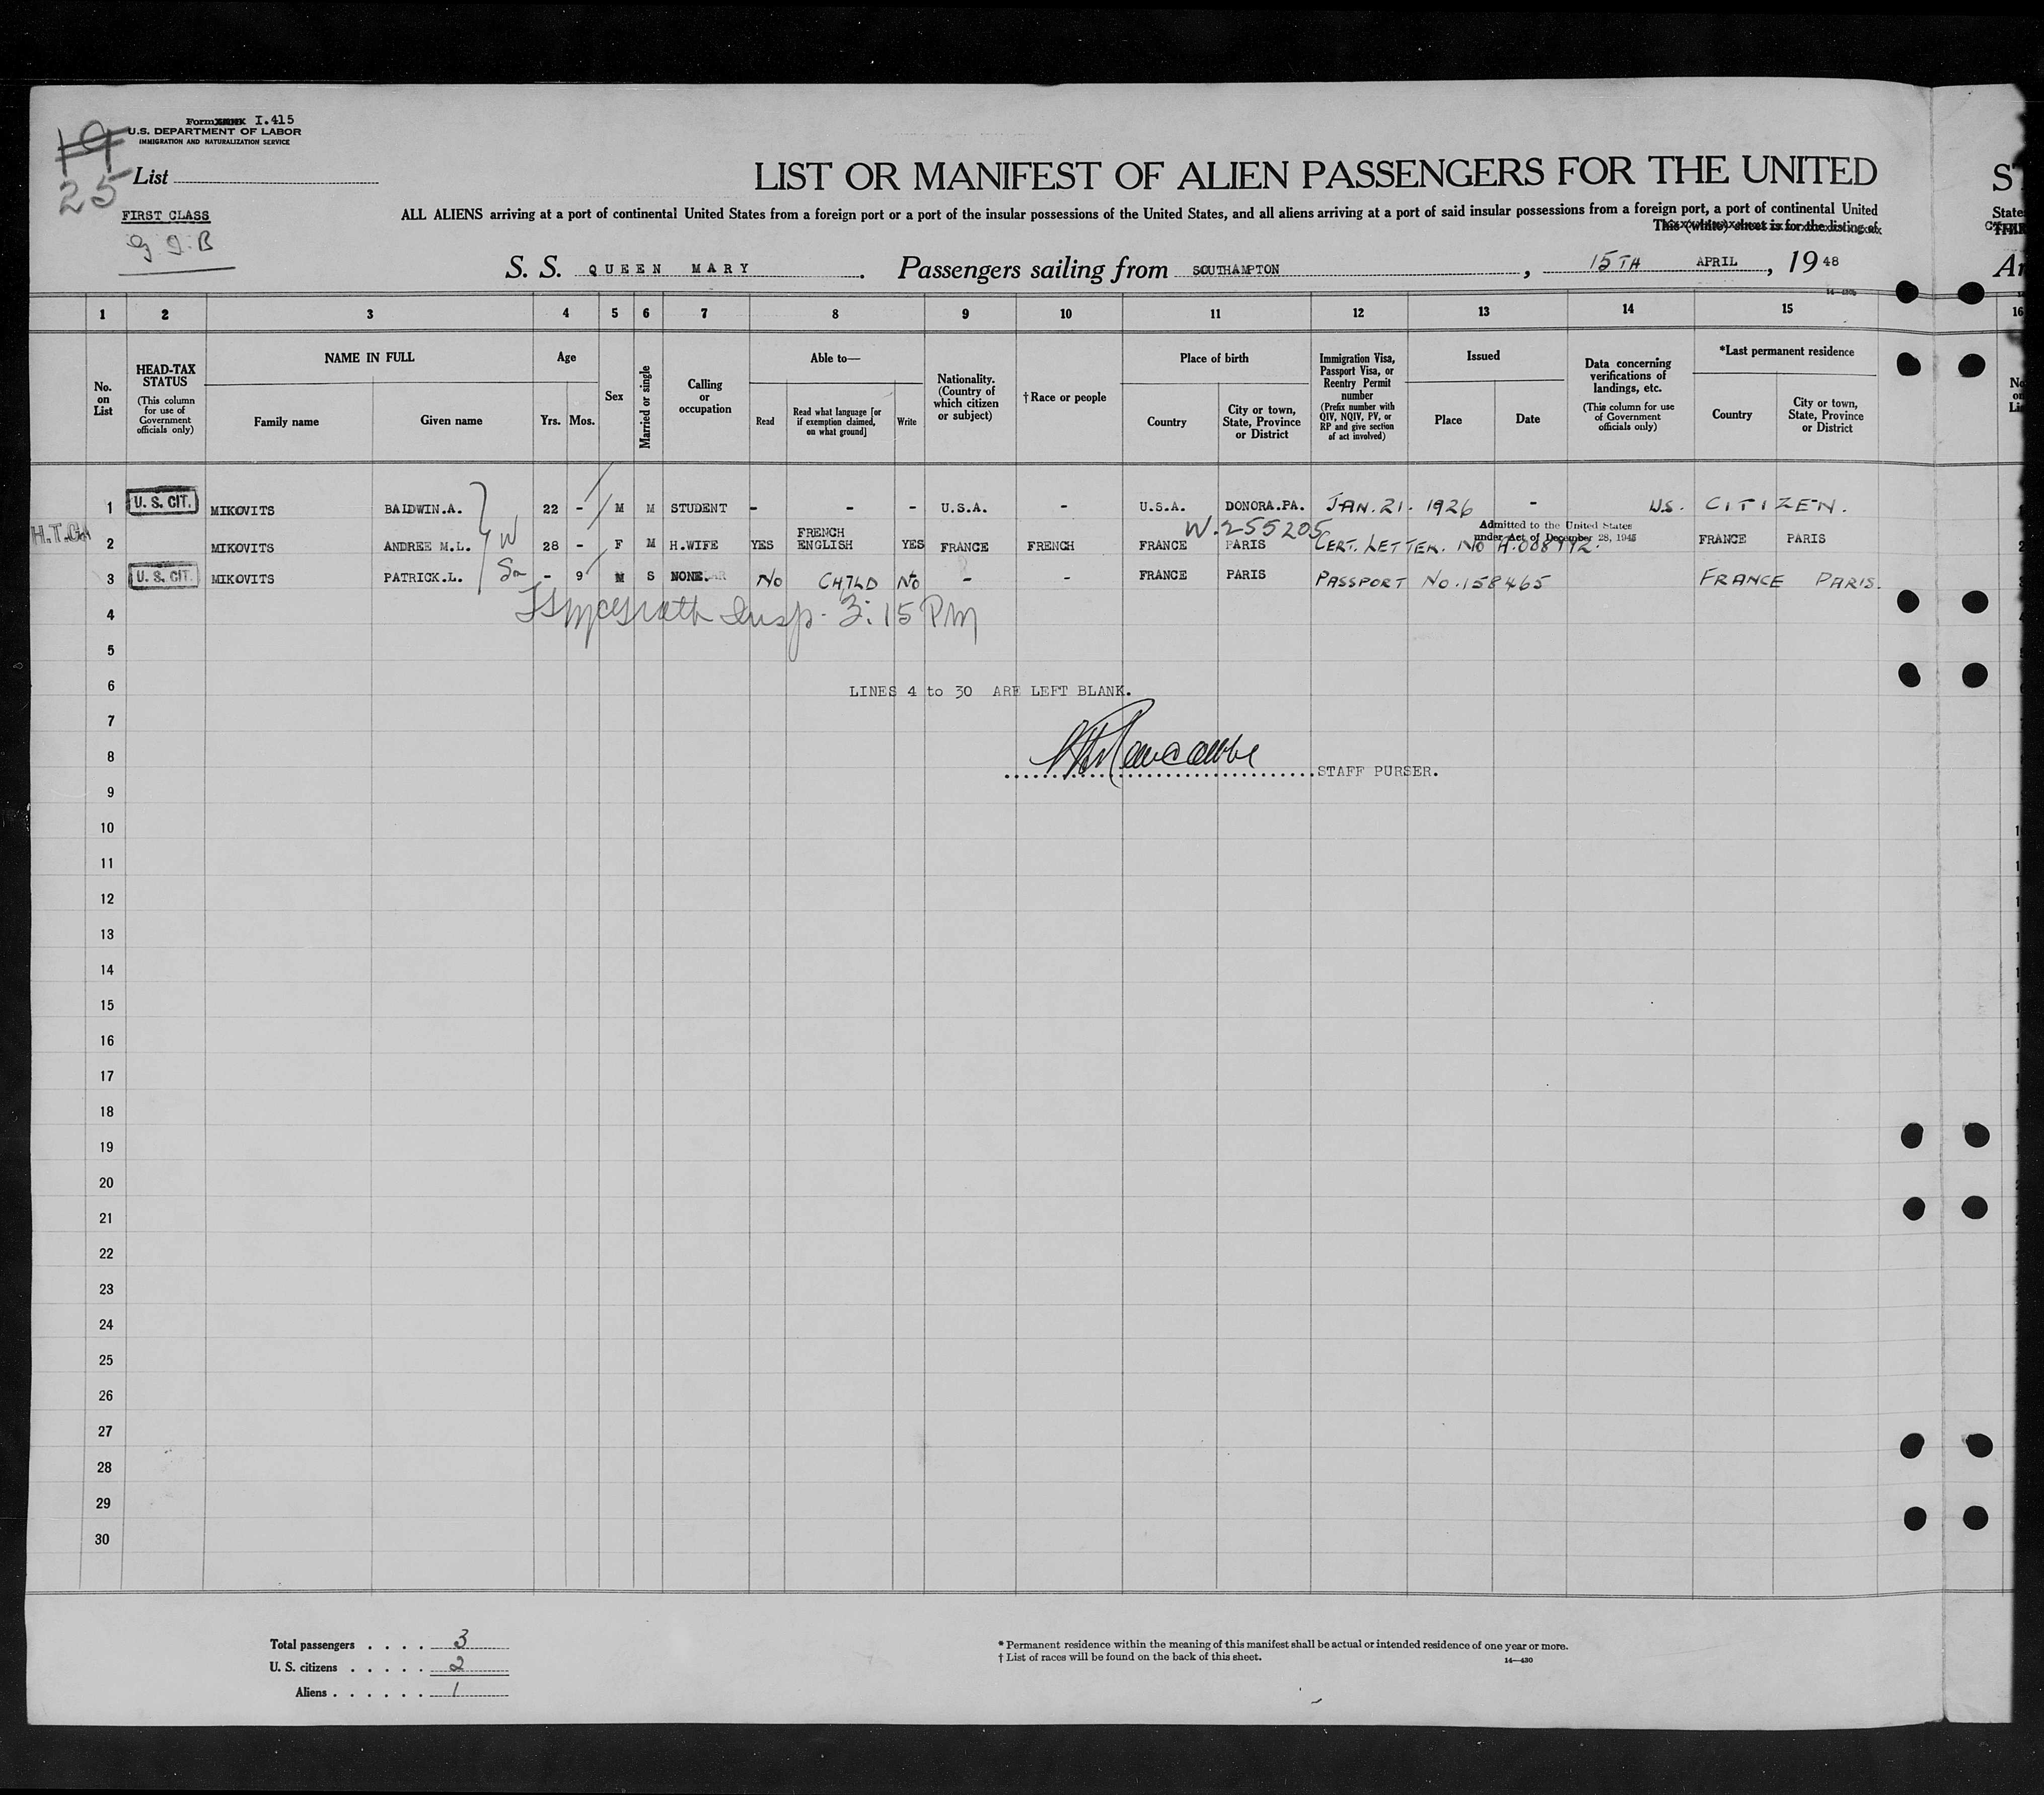 19
25
Form I.415
U.S. DEPARTMENT OF LABOR
IMMIGRATION AND NATURALIZATION SERVICE
List
FIRST CLASS
LIST OR MANIFEST OF ALIEN PASSENGERS FOR THE UNITED
ST
ALL ALIENS arriving at a port of continental United States from a foreign port or a port of the insular possessions of the United States, and all aliens arriving at a port of said insular possessions from a foreign port, a port of continental United
State
This (white) sheet is for the listing of
S. S. QUEEN MARY. Passengers sailing from SOUTHAMPTON, 15TH APRIL, 19 48
1 2 3 4 5 6 7 8 9 10 11 12 13 14 15 16
No. on List
HEAD-TAX STATUS (This column for use of Government officials only)
NAME IN FULL
Family name Given name
Age
Yrs. Mos.
Sex
Married or single
Calling or occupation
Able to—
Read
Read what language [or if exemption claimed, on what ground]
Write
Nationality. (Country of which citizen or subject)
†Race or people
Place of birth
Country
City or town, State, Province or District
Immigration Visa, Passport Visa, or Reentry Permit number (Prefix number with QIV, NQIV, PV, or RP and give section of act involved)
Issued
Place Date
Data concerning verifications of landings, etc. (This column for use of Government officials only)
*Last permanent residence
Country
City or town, State, Province or District
1 U. S. CIT. MIKOVITS BALDWIN.A. 22 - M M STUDENT - - - U.S.A. - U.S.A. DONORA.PA. JAN. 21. 1926 - U.S. CITIZEN.
W.255205
Admitted to the United States
under Act of December 28, 1945
H.T.GA 2 MIKOVITS ANDREE M.L. W 28 - F M H.WIFE YES FRENCH ENGLISH YES FRANCE FRENCH FRANCE PARIS CERT. LETTER. No FRANCE PARIS
3 U. S. CIT. MIKOVITS PATRICK.L. Son - 9 M S NONE. No CHILD No - - FRANCE PARIS PASSPORT No. 158465 FRANCE PARIS.
4 Insp. 3:15 PM
5
6 LINES 4 to 30 ARE LEFT BLANK.
7
8 STAFF PURSER.
9
10
11
12
13
14
15
16
17
18
19
20
21
22
23
24
25
26
27
28
29
30
Total passengers . . . . 3
U. S. citizens . . . . . 2
Aliens . . . . . . 1
* Permanent residence within the meaning of this manifest shall be actual or intended residence of one year or more.
† List of races will be found on the back of this sheet.
14—430